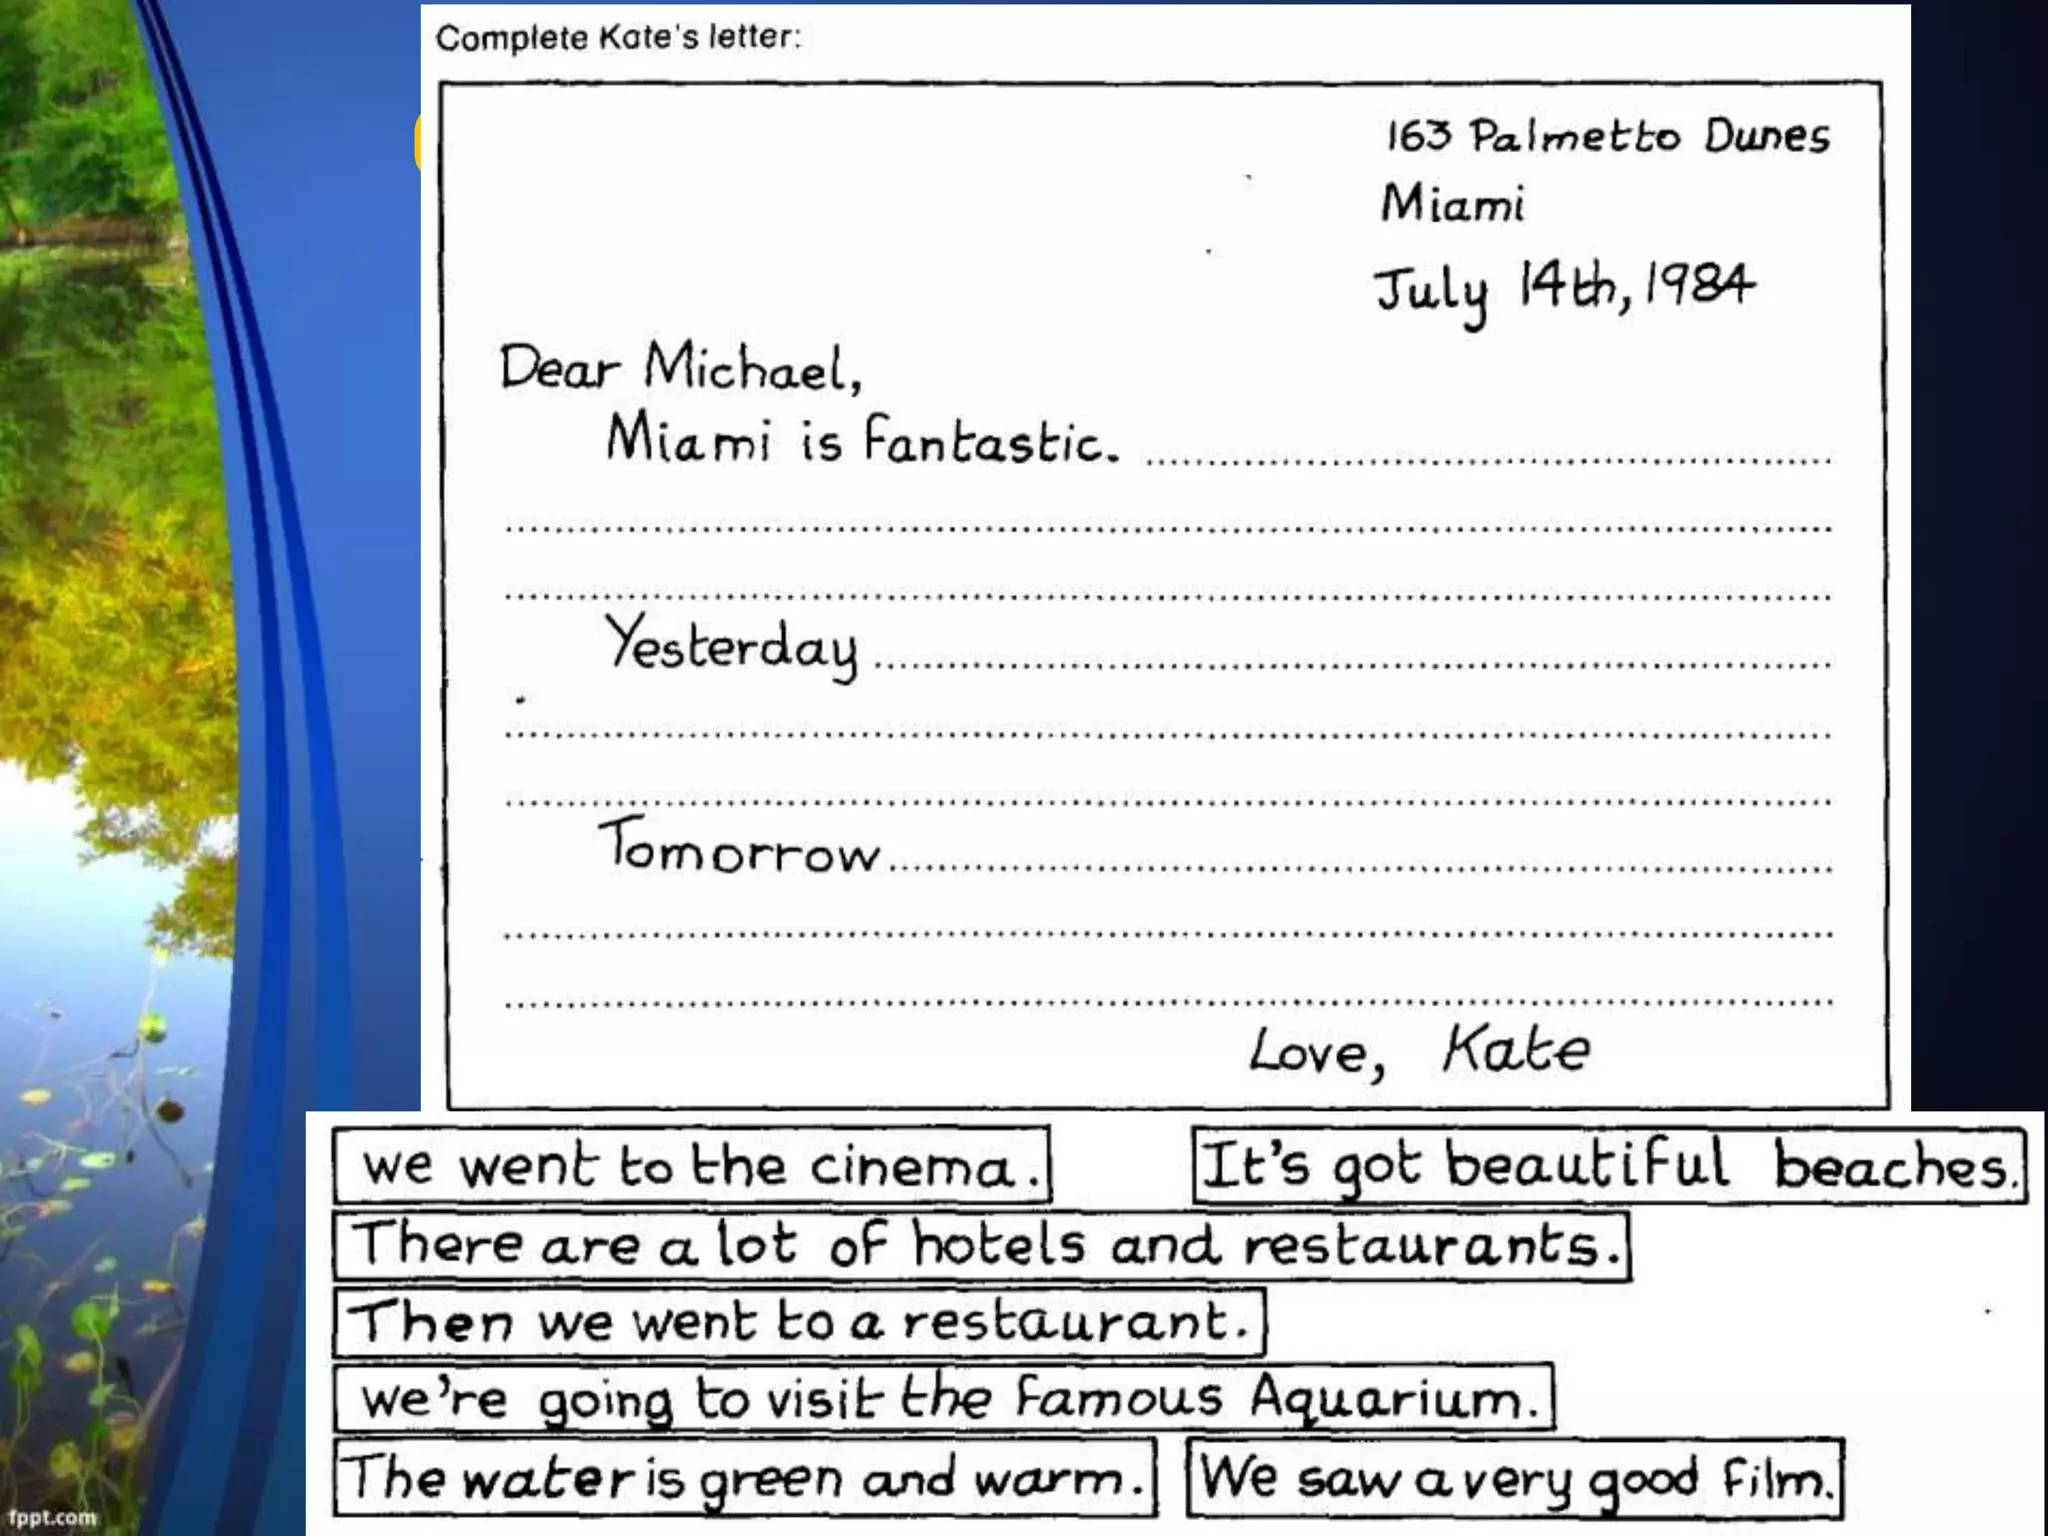 Complete Kate's letter:
163 Palmetto Dunes
Miami
July 14th, 1984
Dear Michael,
Miami is fantastic.
Yesterday
Tomorrow
Love, Kate
we went to the cinema.
It's got beautiful beaches.
There are a lot of hotels and restaurants.
Then we went to a restaurant.
we're going to visit the famous Aquarium.
The water is green and warm.
We saw a very good film.
fppt.com